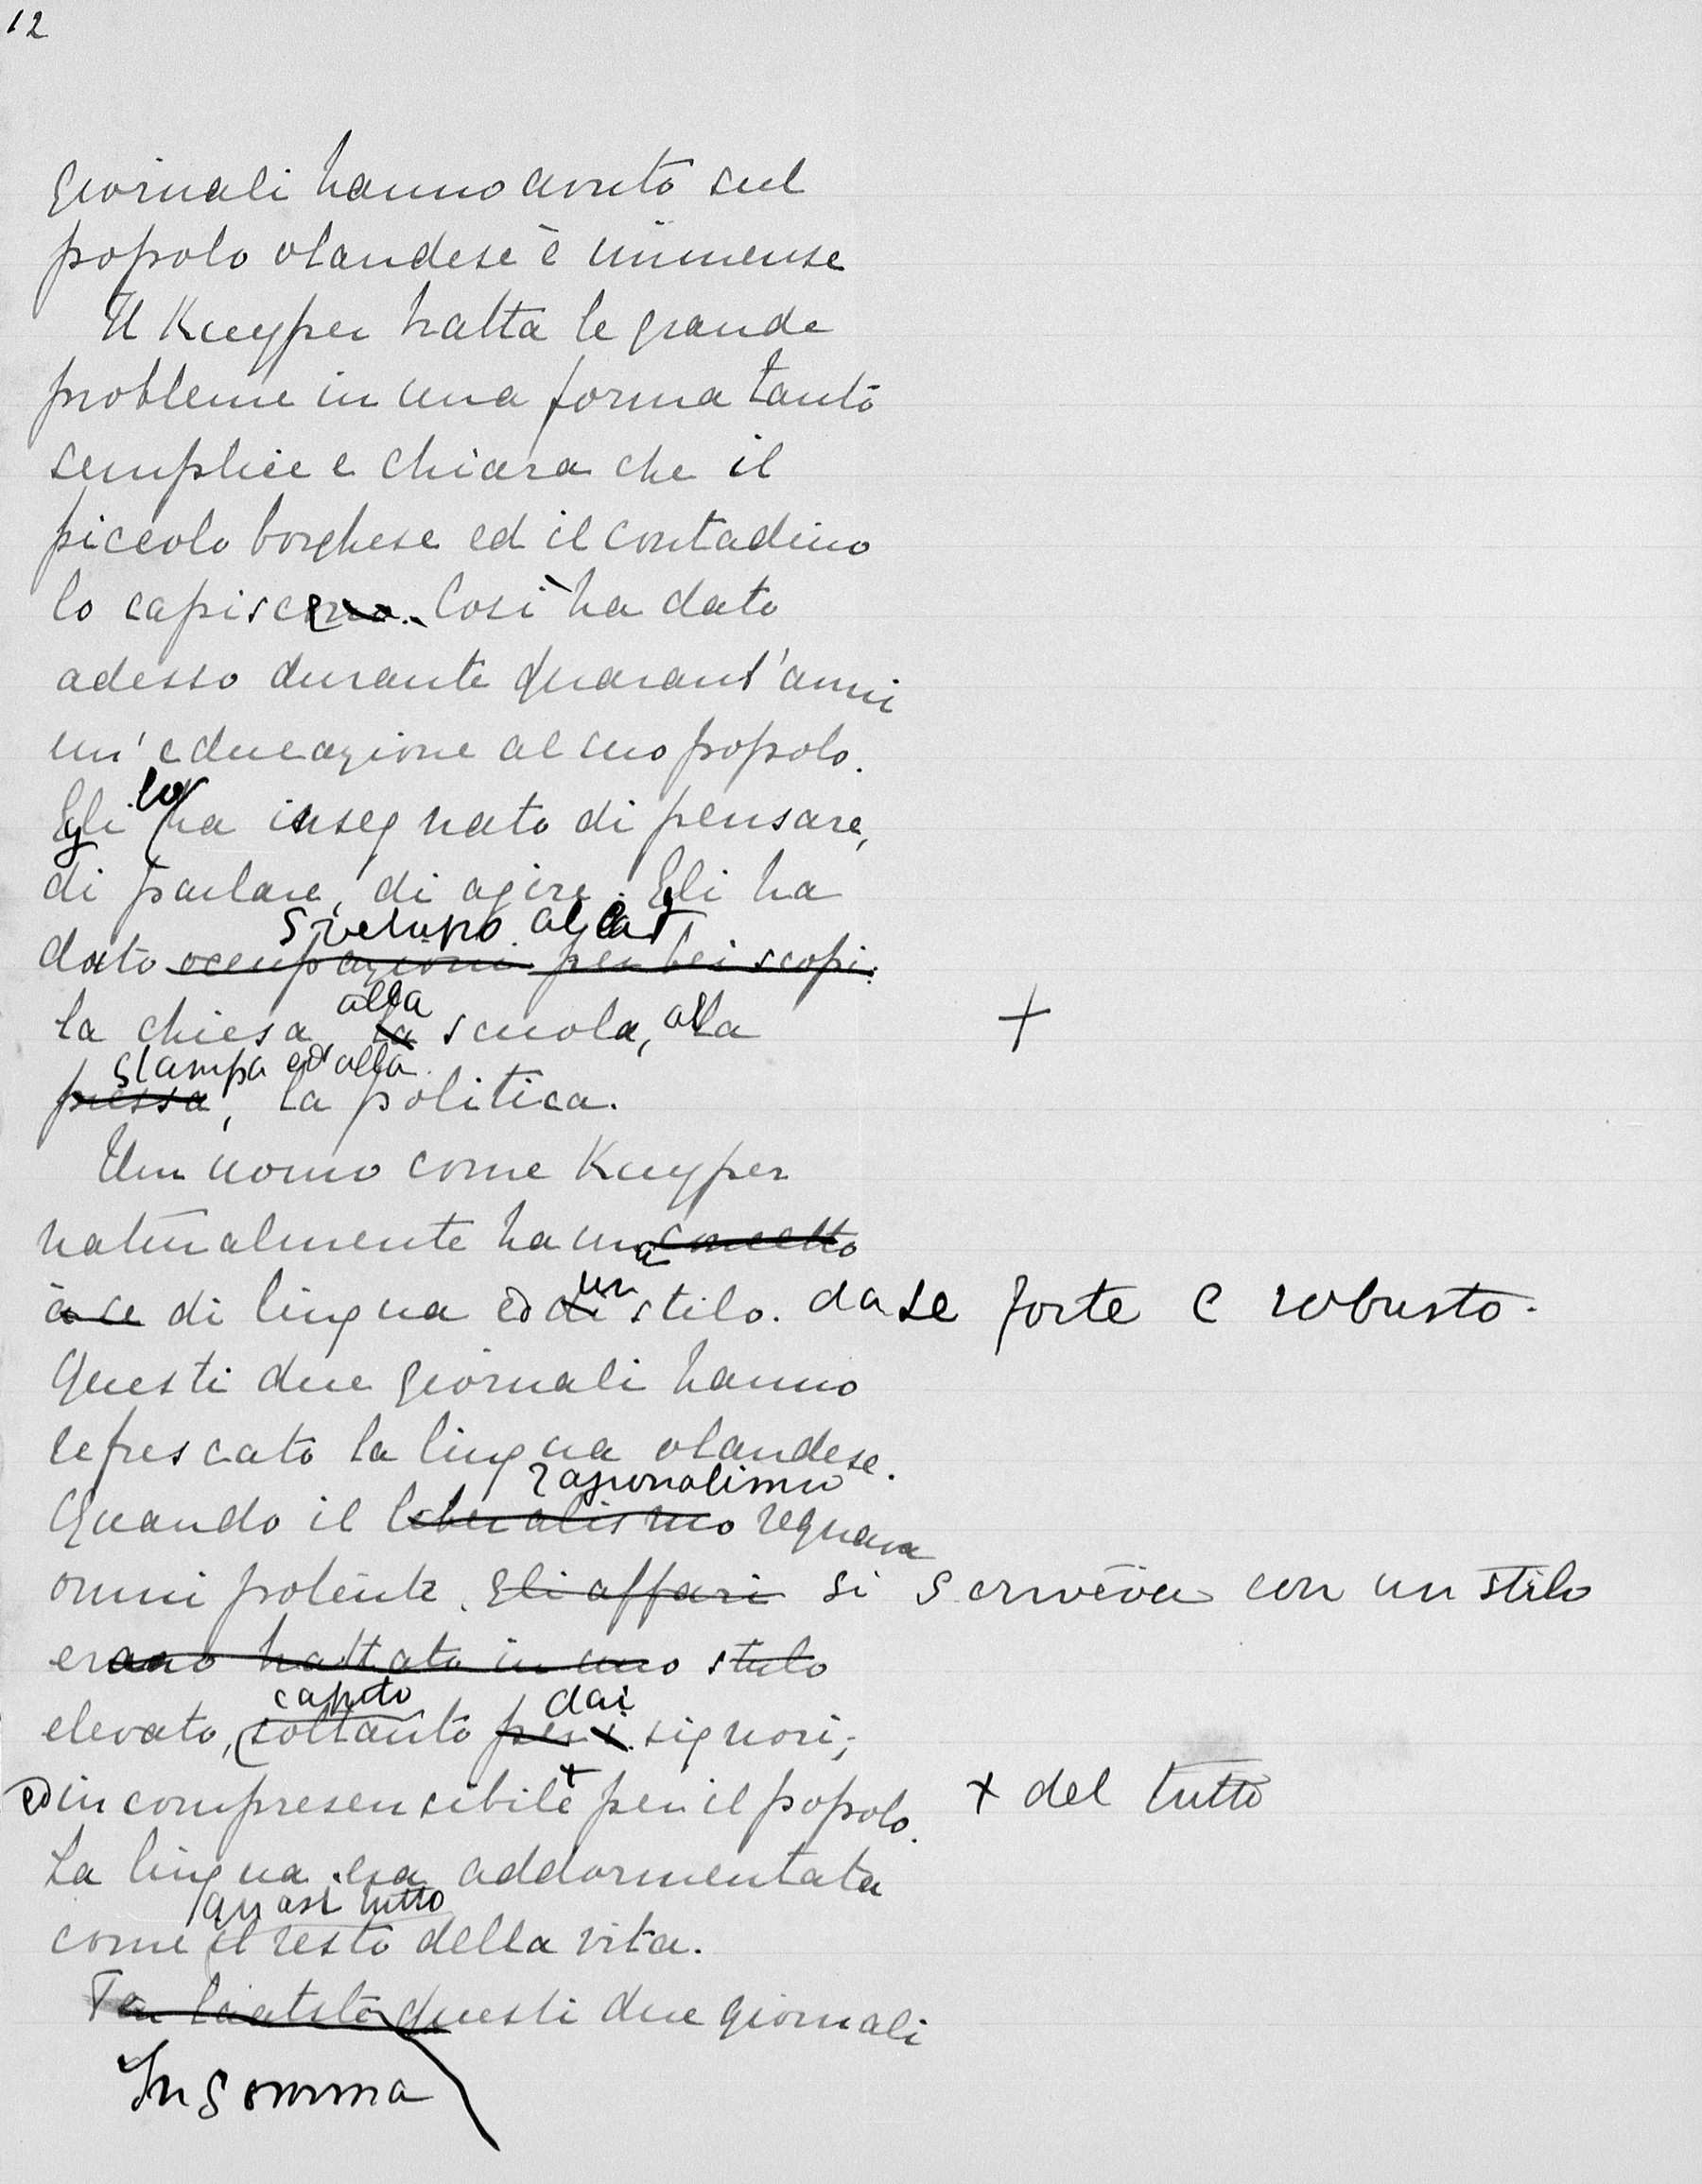 12
giornali hanno avuto sul
popolo olandese è immense
Il Kuyper tratta le grande
probleme in una forma tanto
semplice e chiara che il
piccolo borghese ed il contadino
lo capiscono. Così ha dato
adesso durante quarant'anni
un'educazione al suo popolo.
lo
Egli ha insegnato di pensare,
di parlare, di agire. Egli ha
svelupo alla
dato occupazioni per bei scopi:
alla
la chiesa, la scuola, alla
stampa ed alla
pressa, la politica.
Um uomo come Kuyper
naturalmente ha una concetto
un
à se di lingua ed di stilo. da se forte e robusto.
Questi due giornali hanno
refrescato la lingua olandese.
razionalismo
Quando il liberalismo regnava
omnipotente. gli affari si scriveva con un stilo
erano trattato in uno stilo
capito dai
elevato, soltanto per i signori;
ed incompresensibile + per il popolo. + del tutto
La lingua era addormentata
quasi tutto
come il resto della vita.
questi due giornali
In somma